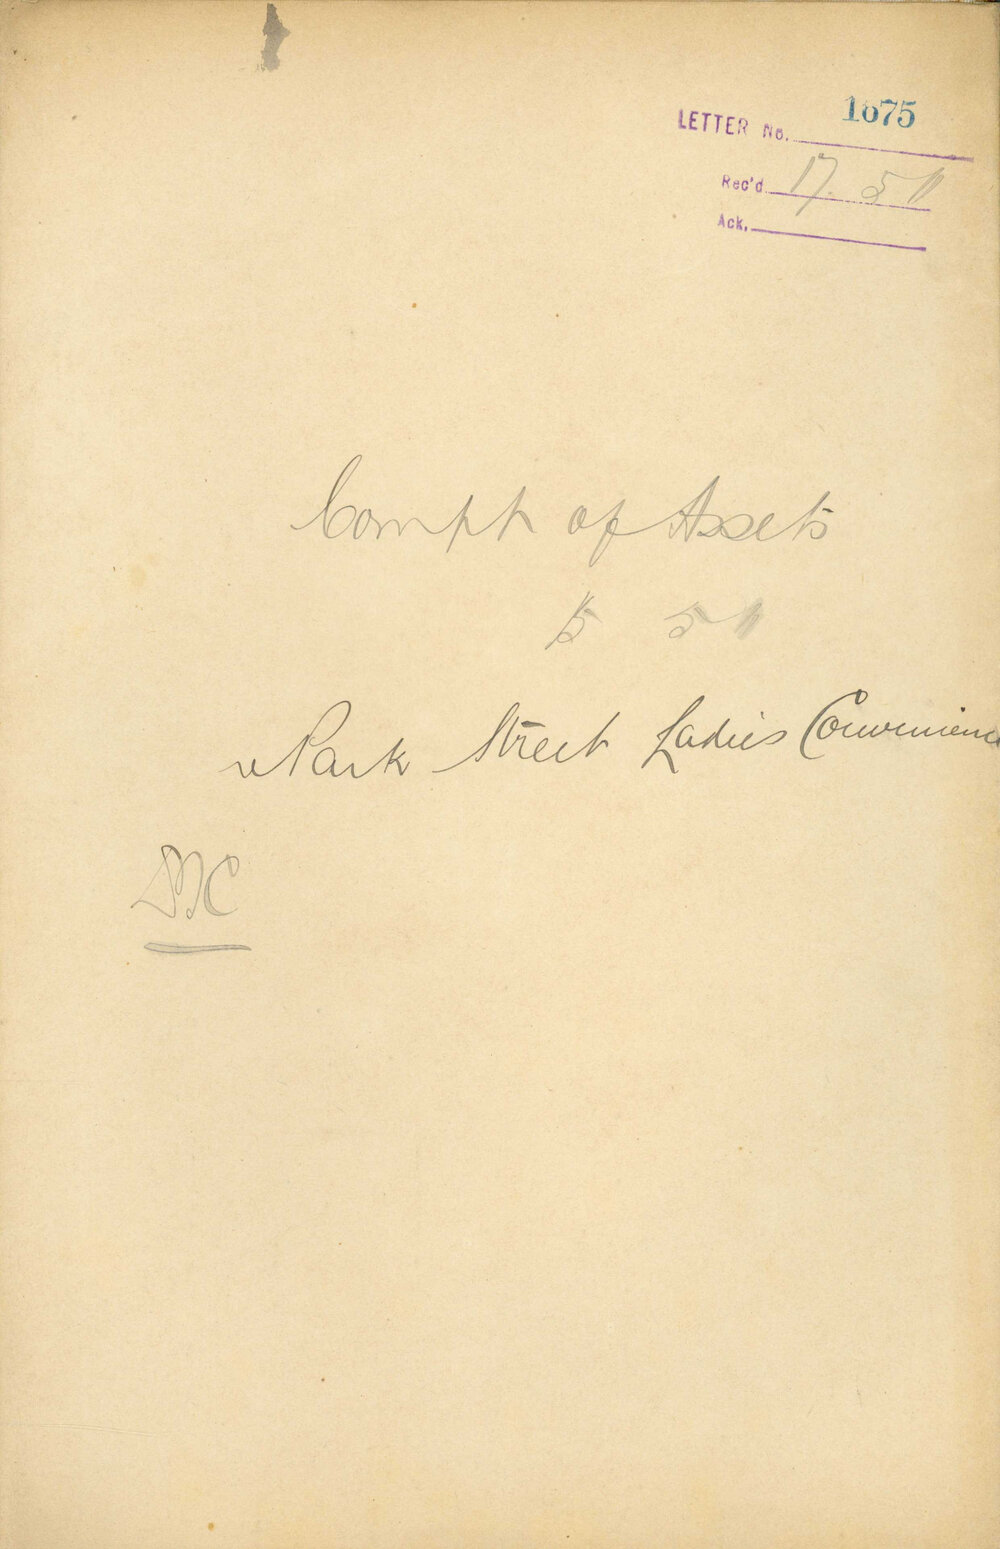 LETTER No. 1675
Rec'd 17. 5 11
Ack.
Compt of Assets
15 5 11
Park Street Ladies Convenienc